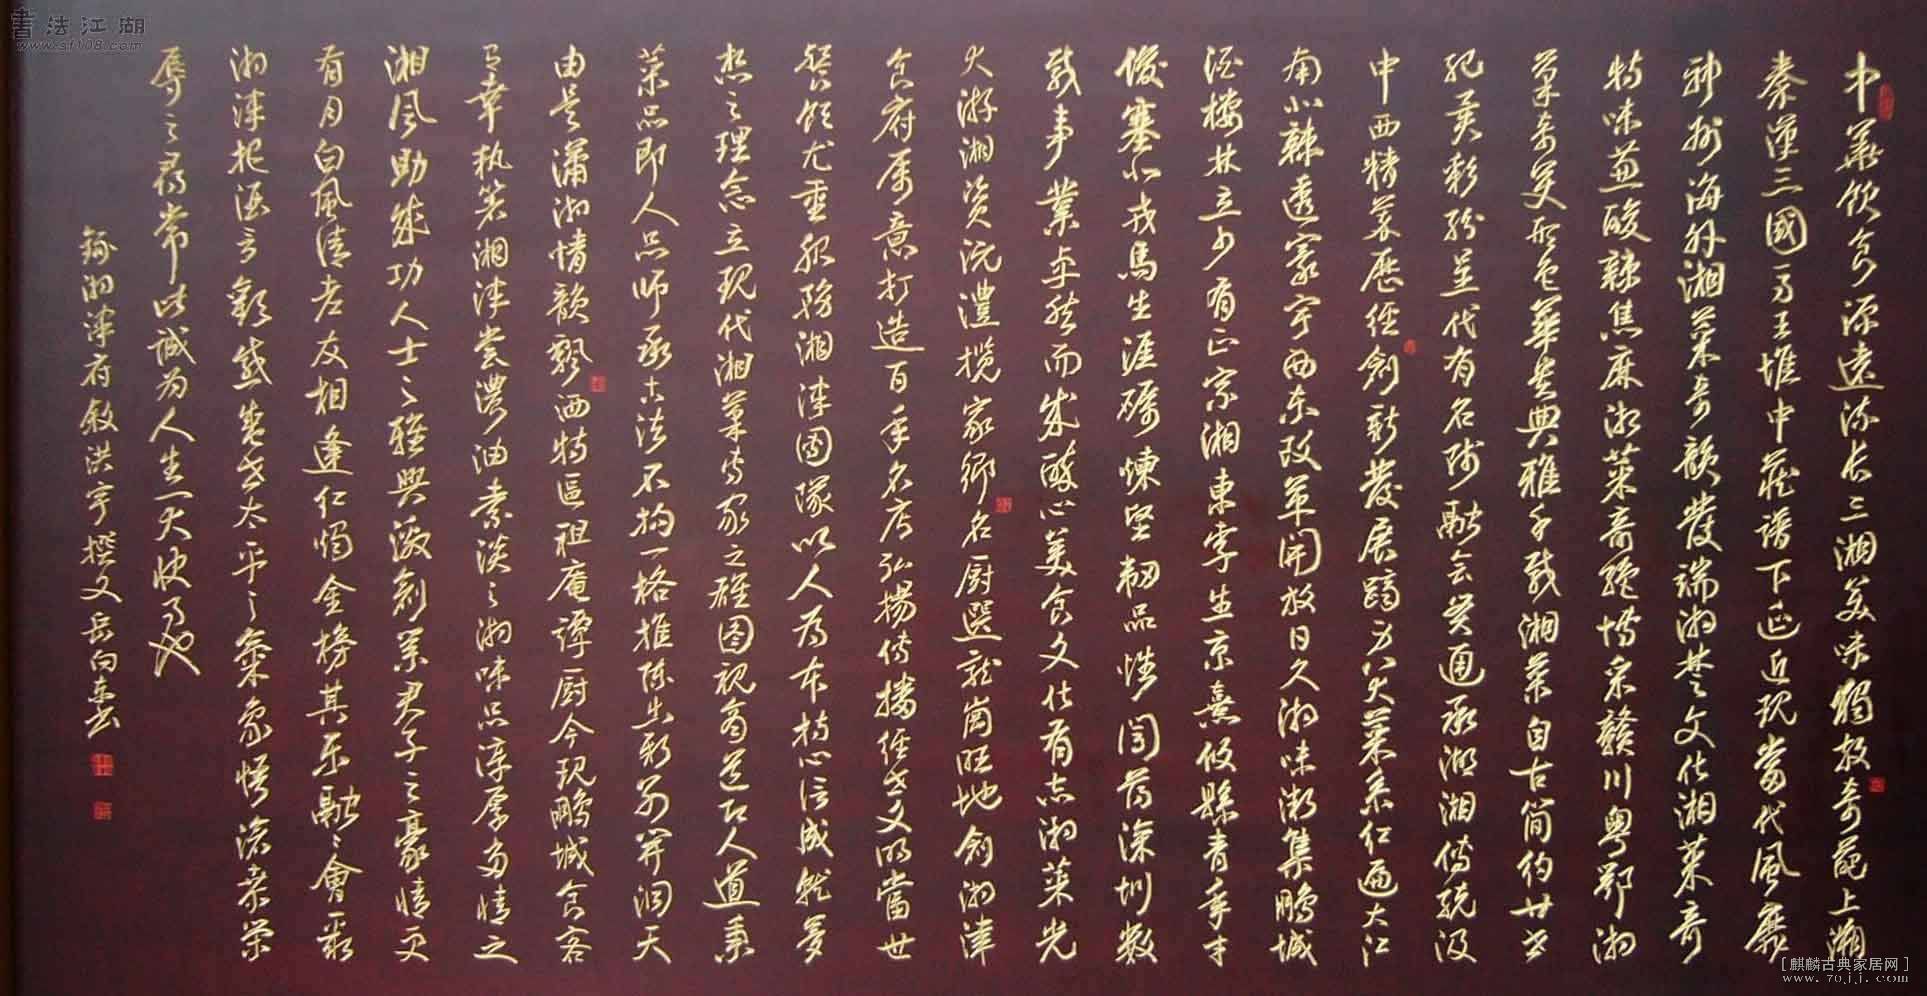 中華飲食源遠流長三湘美味獨放奇葩上溯
秦漢三國馬王堆中藏譜下延近現當代風靡
神州海外湘菜奇韻發端湖楚文化湘菜奇
特味兼酸辣焦麻湘菜奇絶博采贛川粤鄂湘
菜奇美形色華貴典雅千載湘菜自古簡約廿世
紀異彩紛呈代有名師融会贯通承湖湘傳統汲
中西精萃歷經創新發展躋身八大菜系遍大江
南北辣透寰宇西東改革開放日久湘味漸集鵬城
酒樓林立少有正宗湘東李生京熹攸縣青年才
俊塞北戎馬生涯礪煉堅韌品性闖蕩深圳數
載事業卓然而成醉心美食文化有志湘菜光
大游湘資沅澧攬家鄉名厨選龍崗旺地創湘津
食府属意打造百年名店弘揚傳播經世文明當世
餐飲尤重服務湘津團隊以人為本持心信成就夢
想之理念立現代湘菜專家之雄圖視商道即人道秉
菜品即人品師承古法不拘一格推陳出新别開洞天
由是瀟湘情韻飄洒特區祖庵譚厨今現鵬城食客
有幸執箸湘津嘗濃油素淡之湘味品淳厚多情之
湘風助成功人士之雅興激創業君子之豪情更
有月白風清老友相逢燭金榜其樂融融會聚
湘津把酒言歡感盛世太平之氣象悟滄桑榮
辱之尋常此誠為人生一大快事也
湘津府叙洪宇撰文岳向東書
書法江湖
www.sf108.com
[麒麟古典家居网]
www.70jj.com